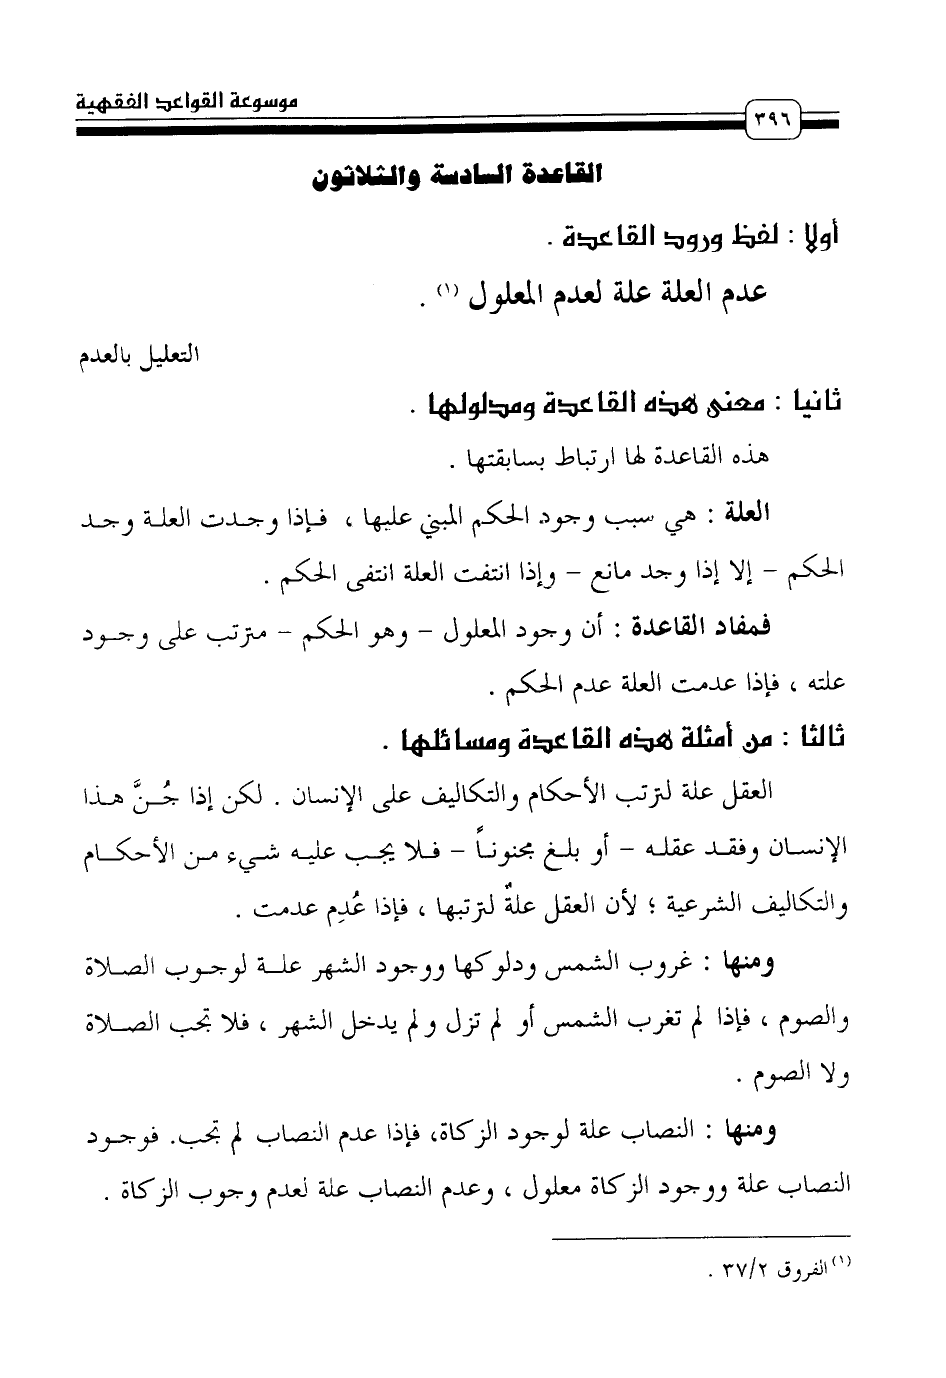 موسوعة القواعد الفقهية
٣٩٦
القاعدة السادسة والثلاثون
أولا : لفظ ورود القاعدة .
عدم العلة علة لعدم المعلول (١) .
التعليل بالعدم
ثانيا : معنى هذه القاعدة ومدلولها .
هذه القاعدة لها ارتباط بسابقتها .
العلة : هي سبب وجود الحكم المبني عليها ، فإذا وجدت العلة وجد
الحكم – إلا إذا وجد مانع – وإذا انتفت العلة انتفى الحكم .
فمفاد القاعدة : أن وجود المعلول – وهو الحكم – مترتب على وجود
علته ، فإذا عدمت العلة عدم الحكم .
ثالثا : من أمثلة هذه القاعدة ومسائلها .
العقل علة لترتب الأحكام والتكاليف على الإنسان . لكن إذا جُنَّ هذا
الإنسان وفقد عقله – أو بلغ مجنوناً – فلا يجب عليه شيء من الأحكام
والتكاليف الشرعية ؛ لأن العقل علةٌ لترتبها ، فإذا عُدِم عدمت .
ومنها : غروب الشمس ودلوكها ووجود الشهر علة لوجوب الصلاة
والصوم ، فإذا لم تغرب الشمس أو لم تزل ولم يدخل الشهر ، فلا تجب الصلاة
ولا الصوم .
ومنها : النصاب علة لوجود الزكاة، فإذا عدم النصاب لم تجب. فوجود
النصاب علة ووجود الزكاة معلول ، وعدم النصاب علة لعدم وجوب الزكاة .
(١) الفروق ٣٧/٢ .